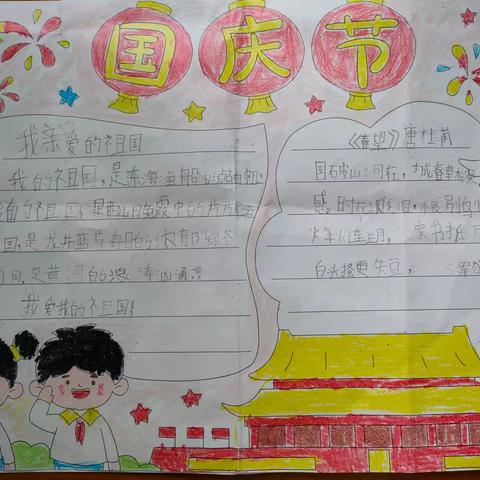 国庆节
我亲爱的祖国
我的祖国，是东海渔船的点点帆
的祖国，是西山晚霞中的片片
国，是龙井的浓郁绿茶
国，是黄河的浪涛汹涌
我爱我的祖国！
《春望》唐杜甫
国破山河在，城春草木深
感时花溅泪，恨别鸟
烽火连三月，家书抵万
白头搔更短，浑欲